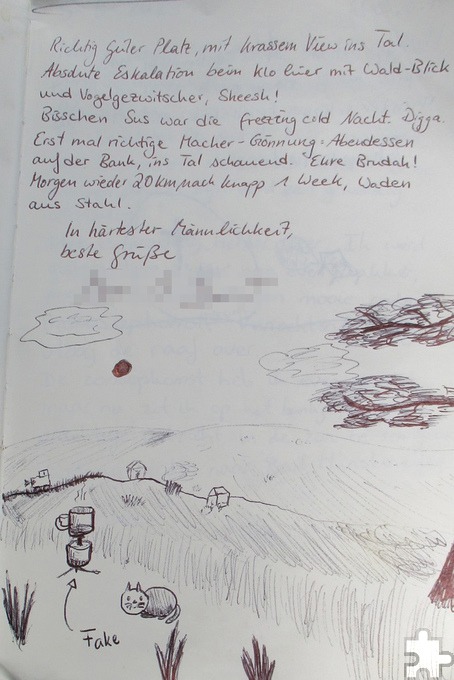 Richtig guter Platz, mit krassem View ins Tal.
Absolute Eskalation beim Klo hier mit Wald-Blick
und Vogelgezwitscher, Sheesh!
Bisschen Sus war die freezing cold Nacht. Digga.
Erst mal richtige Macher-Gönnung: Abendessen
auf der Bank, ins Tal schauend. Ehre Brudah!
Morgen wieder 20km, nach knapp 1 Week, Waden
aus Stahl.
In härtester Männlichkeit,
beste Grüße
Fake